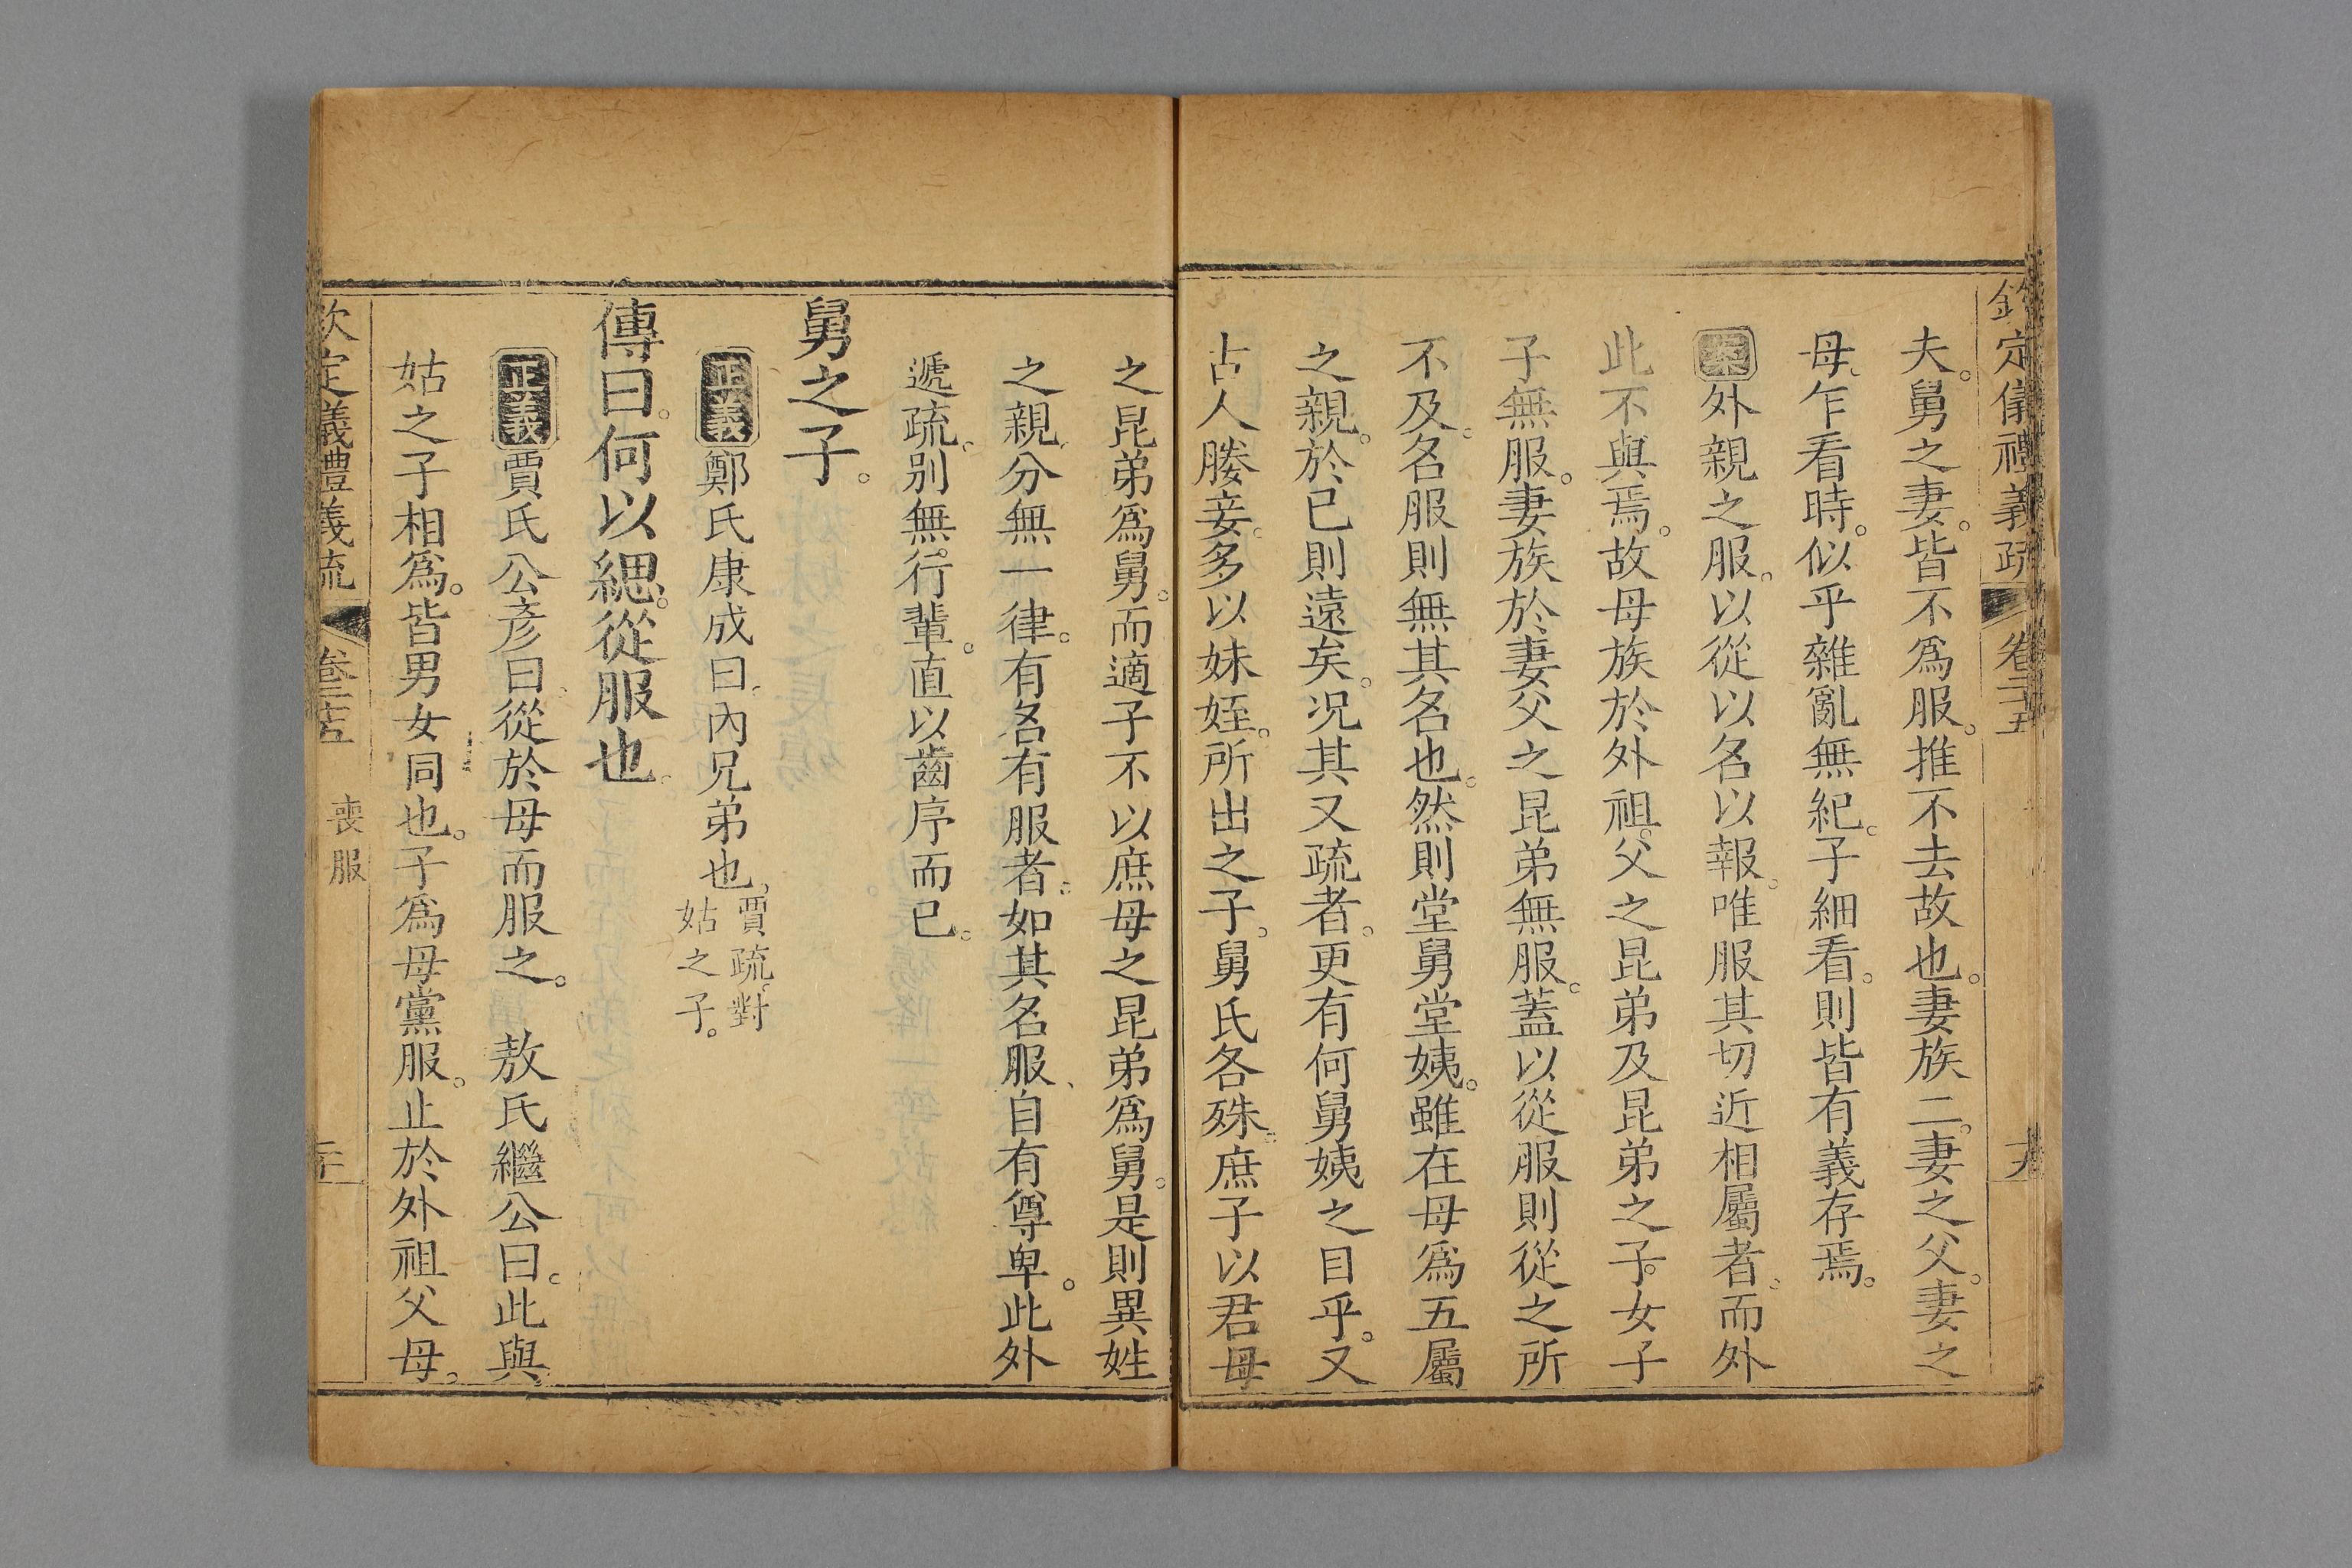 欽定儀禮義疏 卷二十五 十九
夫。舅之妻。皆不爲服。推不去故也。妻族二。妻之父。妻之
母、乍看時。似乎雜亂無紀。子細看。則皆有義存焉。
案外親之服。以從以名以報。唯服其切近相屬者、而外
此不與焉。故母族於外祖。父之昆弟及昆弟之子。女子
子無服。妻族於妻父之昆弟無服。蓋以從服則從之所
不及。名服則無其名也。然則堂舅堂姨。雖在母爲五屬
之親。於已則遠矣。况其又疏者。更有何舅姨之目乎。又
古人媵妾。多以妹姪。所出之子。舅氏各殊。庶子以君母
之昆弟爲舅。而適子不以庶母之昆弟爲舅。是則異姓
之親、分無一律。有名有服者。如其名服、自有尊卑。此外
遞疏、别無行輩。直以齒序而已。
舅之子。
正義鄭氏康成曰、內兄弟也。賈疏。對
姑之子。
傳曰。何以緦。從服也。
正義賈氏公彥曰、從於母而服之。 敖氏繼公曰。此與
姑之子相爲。皆男女同也。子爲母黨服。止於外祖父母。
欽定儀禮義疏 卷二十五 喪服 二十